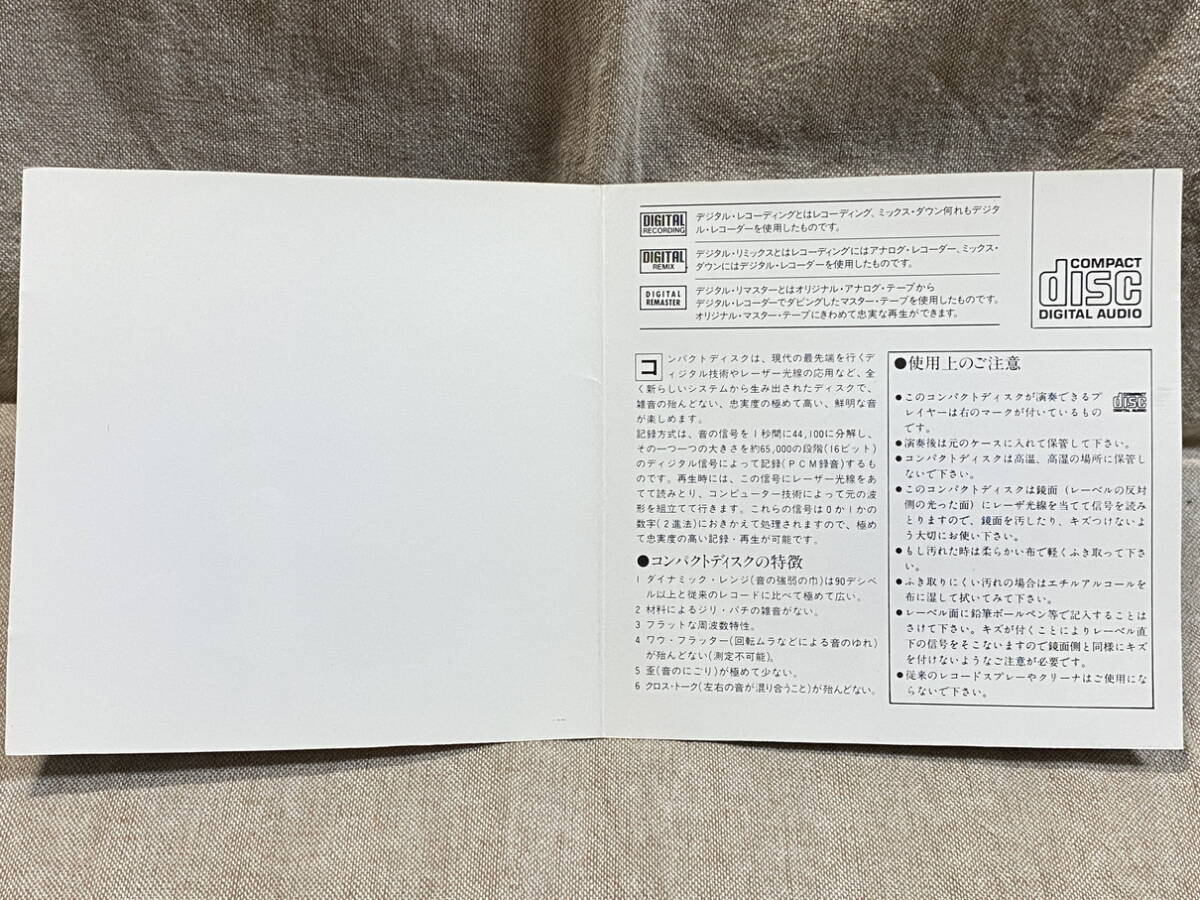 DIGITAL
RECORDING
デジタル・レコーディングとはレコーディング、ミックス・ダウン何れもデジタ
ル・レコーダーを使用したものです。
DIGITAL
REMIX
デジタル・リミックスとはレコーディングにはアナログ・レコーダー、ミックス・
ダウンにはデジタル・レコーダーを使用したものです。
DIGITAL
REMASTER
デジタル・リマスターとはオリジナル・アナログ・テープから
デジタル・レコーダーでダビングしたマスター・テープを使用したものです。
オリジナル・マスター・テープにきわめて忠実な再生ができます。
COMPACT
disc
DIGITAL AUDIO
コンパクトディスクは、現代の最先端を行くデ
ィジタル技術やレーザー光線の応用など、全
く新らしいシステムから生み出されたディスクで、
雑音の殆んどない、忠実度の極めて高い、鮮明な音
が楽しめます。
記録方式は、音の信号を1秒間に44,100に分解し、
その一つ一つの大きさを約65,000の段階(16ビット)
のディジタル信号によって記録(PCM録音)するも
のです。再生時には、この信号にレーザー光線をあ
てて読みとり、コンピューター技術によって元の波
形を組立てて行きます。これらの信号は0か1かの
数字(2進法)におきかえて処理されますので、極め
て忠実度の高い記録・再生が可能です。
●コンパクトディスクの特徴
1 ダイナミック・レンジ(音の強弱の巾)は90デシベ
ル以上と従来のレコードに比べて極めて広い。
2 材料によるジリ・パチの雑音がない。
3 フラットな周波数特性。
4 ワウ・フラッター(回転ムラなどによる音のゆれ)
が殆んどない(測定不可能)。
5 歪(音のにごり)が極めて少ない。
6 クロス・トーク(左右の音が混り合うこと)が殆んどない。
●使用上のご注意
●このコンパクトディスクが演奏できるプ
レイヤーは右のマークが付いているもの
です。
disc
DIGITAL AUDIO
●演奏後は元のケースに入れて保管して下さい。
●コンパクトディスクは高温、高湿の場所に保管し
ないで下さい。
●このコンパクトディスクは鏡面(レーベルの反対
側の光った面)にレーザ光線を当てて信号を読み
とりますので、鏡面を汚したり、キズつけないよ
う大切にお使い下さい。
●もし汚れた時は柔らかい布で軽くふき取って下さ
い。
●ふき取りにくい汚れの場合はエチルアルコールを
布に湿して拭いてみて下さい。
●レーベル面に鉛筆ボールペン等で記入することは
さけて下さい。キズが付くことによりレーベル直
下の信号をそこないますので鏡面側と同様にキズ
を付けないようなご注意が必要です。
●従来のレコードスプレーやクリーナはご使用にな
らないで下さい。